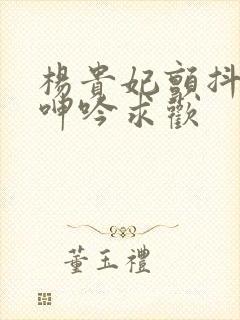 楊貴妃顫抖
呻吟求歡
董玉禮